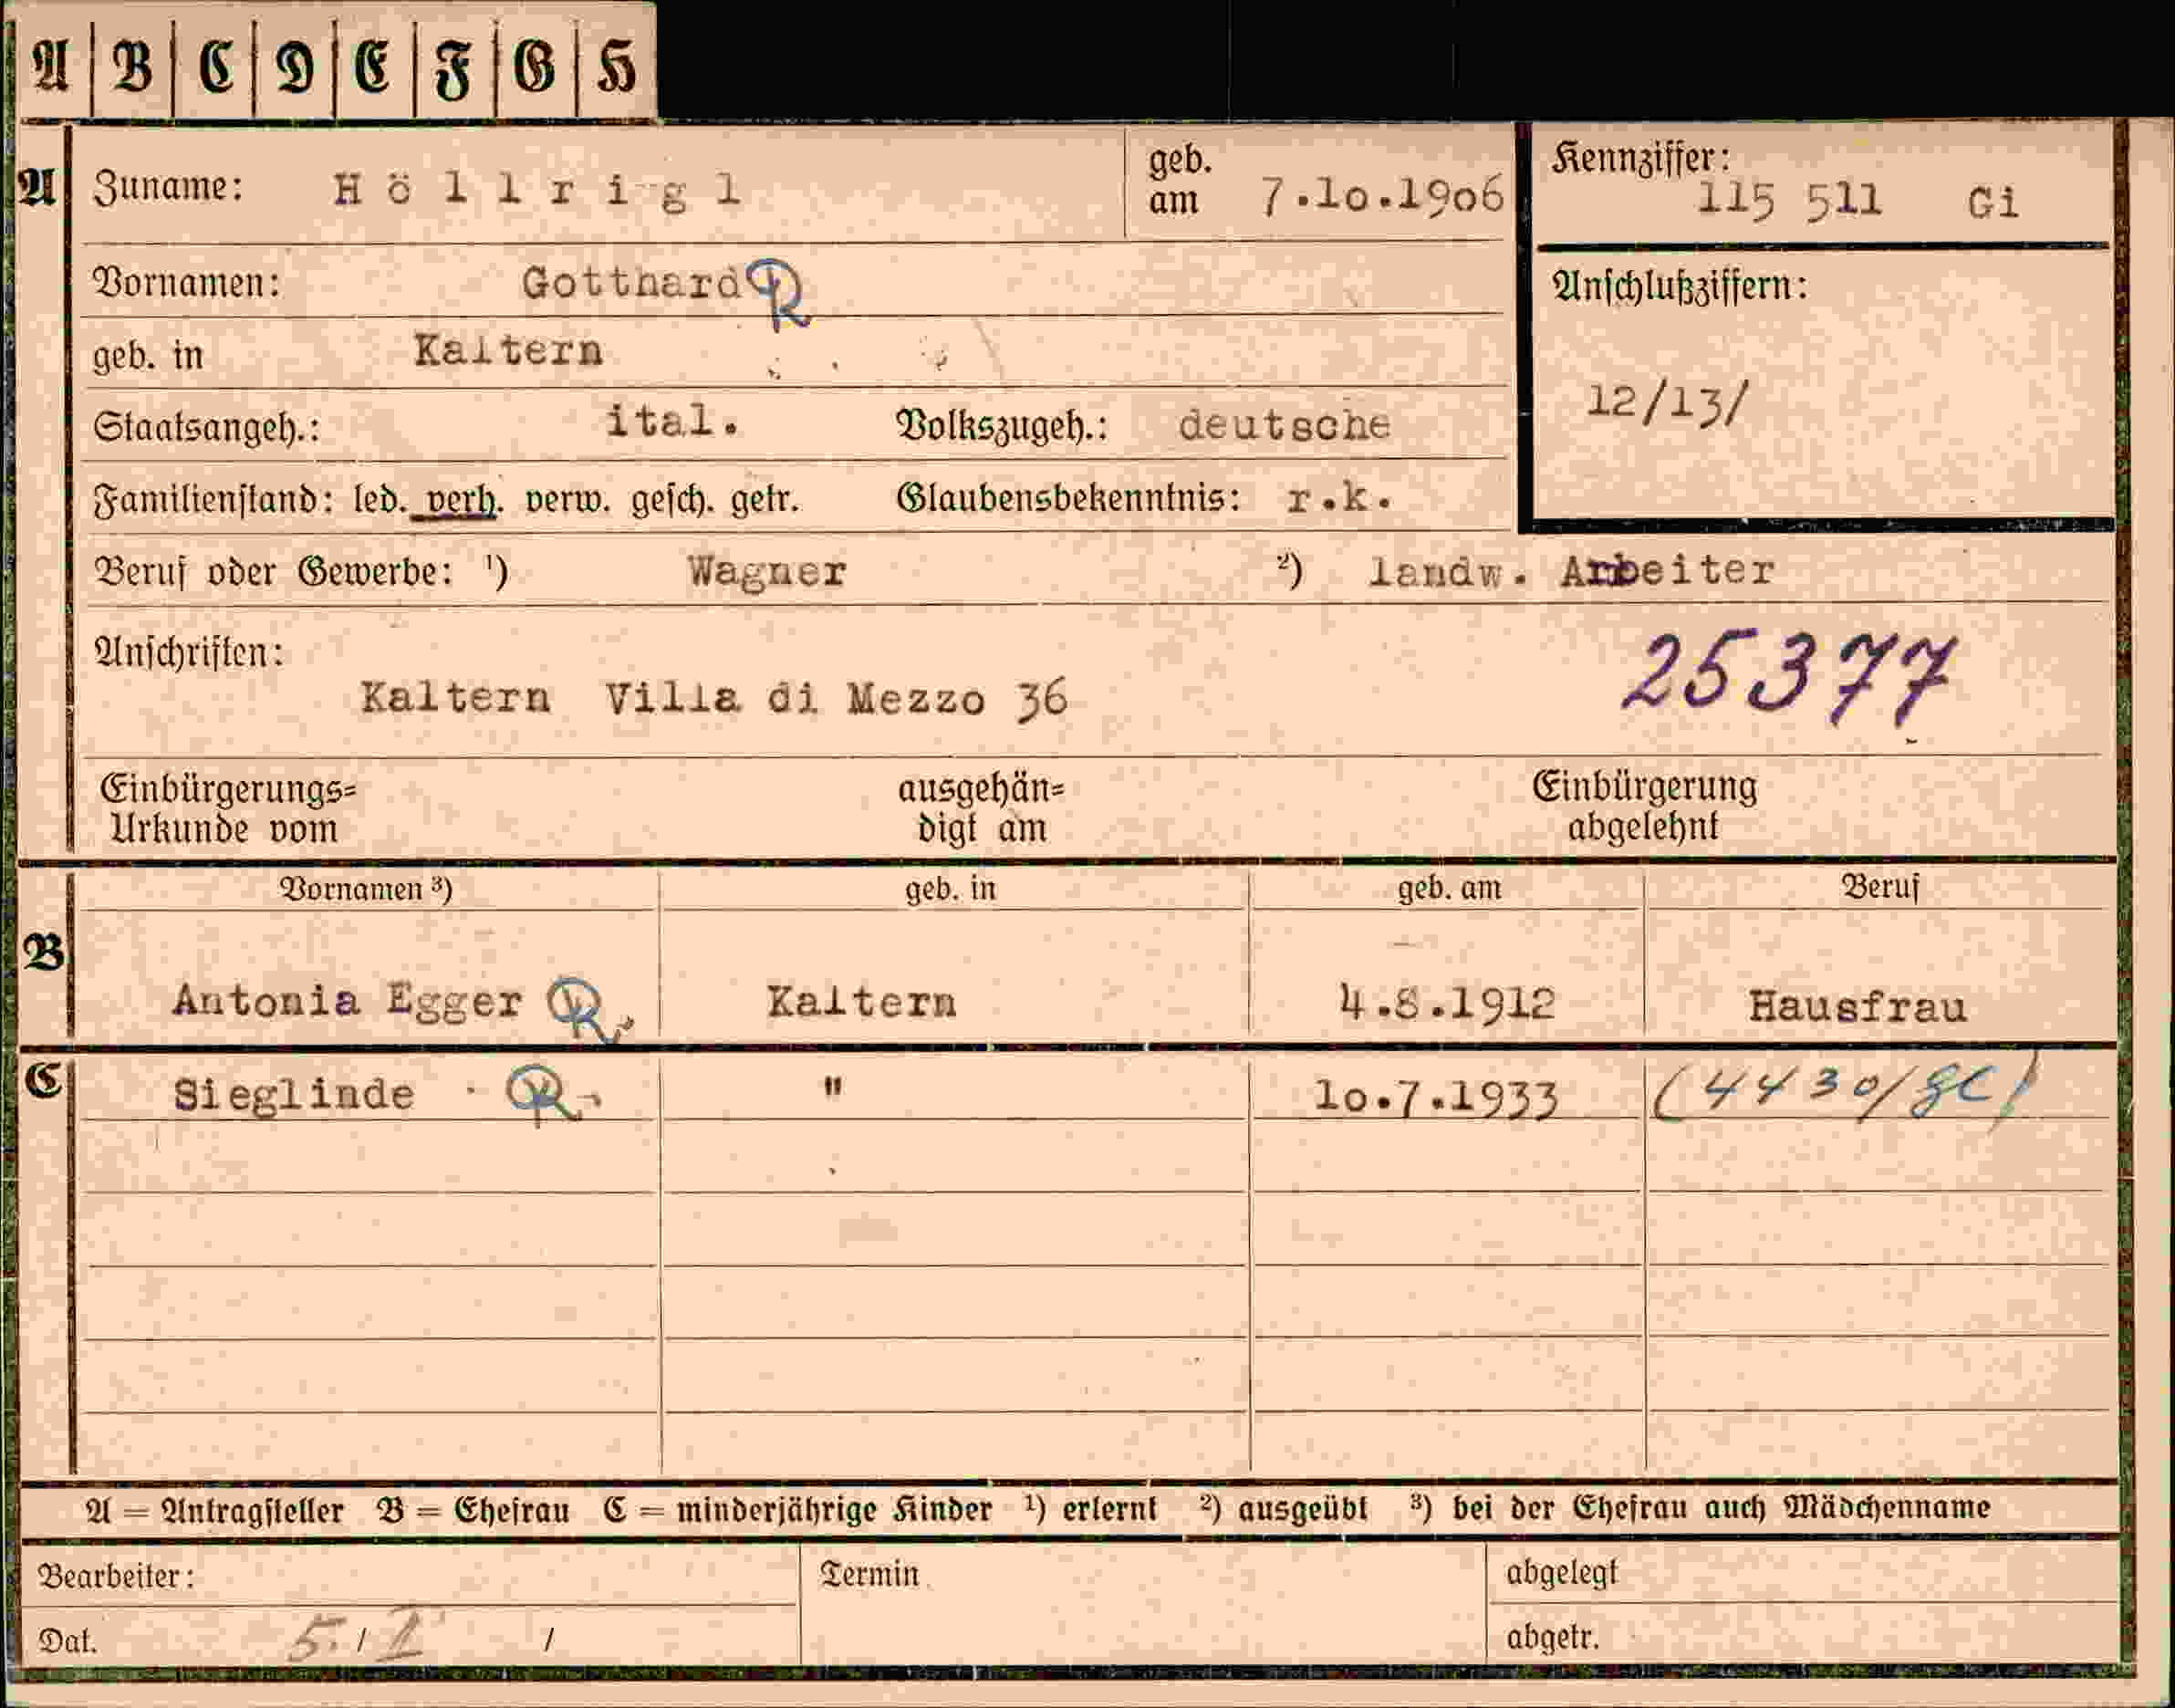 A B C D E F G H
A Zuname: Höllrigl geb. am 7.10.1906 Kennziffer: 115 511 Gi
Vornamen: Gotthard R Anschlußziffern:
geb. in Kaltern
12/13/
Staatsangeh.: ital. Volkszugeh.: deutsche
Familienstand: led. verh. verw. gesch. getr. Glaubensbekenntnis: r.k.
Beruf oder Gewerbe: ¹) Wagner ²) landw. Arbeiter
Anschriften: 25377
Kaltern Villa di Mezzo 36
Einbürgerungs= ausgehän= Einbürgerung
Urkunde vom digt am abgelehnt
Vornamen ³) geb. in geb. am Beruf
B
Antonia Egger R Kaltern 4.8.1912 Hausfrau
C Sieglinde R " 10.7.1933 (4430/
A = Antragsteller B = Ehefrau C = minderjährige Kinder ¹) erlernt ²) ausgeübt ³) bei der Ehefrau auch Mädchenname
Bearbeiter: Termin abgelegt
Dat. 5. / I / abgetr.